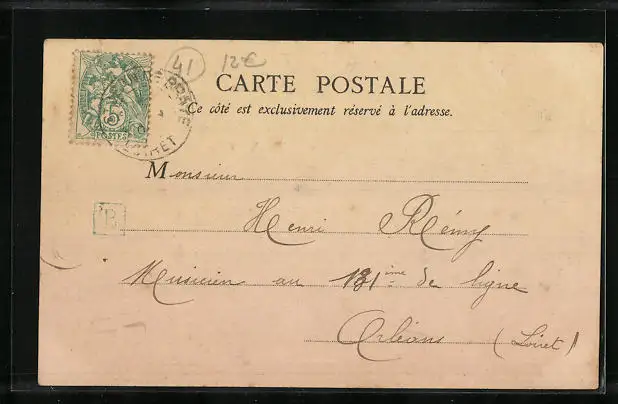 41 12€
CARTE POSTALE
Ce côté est exclusivement réservé à l'adresse.
5
POSTES
LOIRET
Monsieur
Henri Rémy
B
Musicien au 131ème de ligne
Orléans (Loiret)